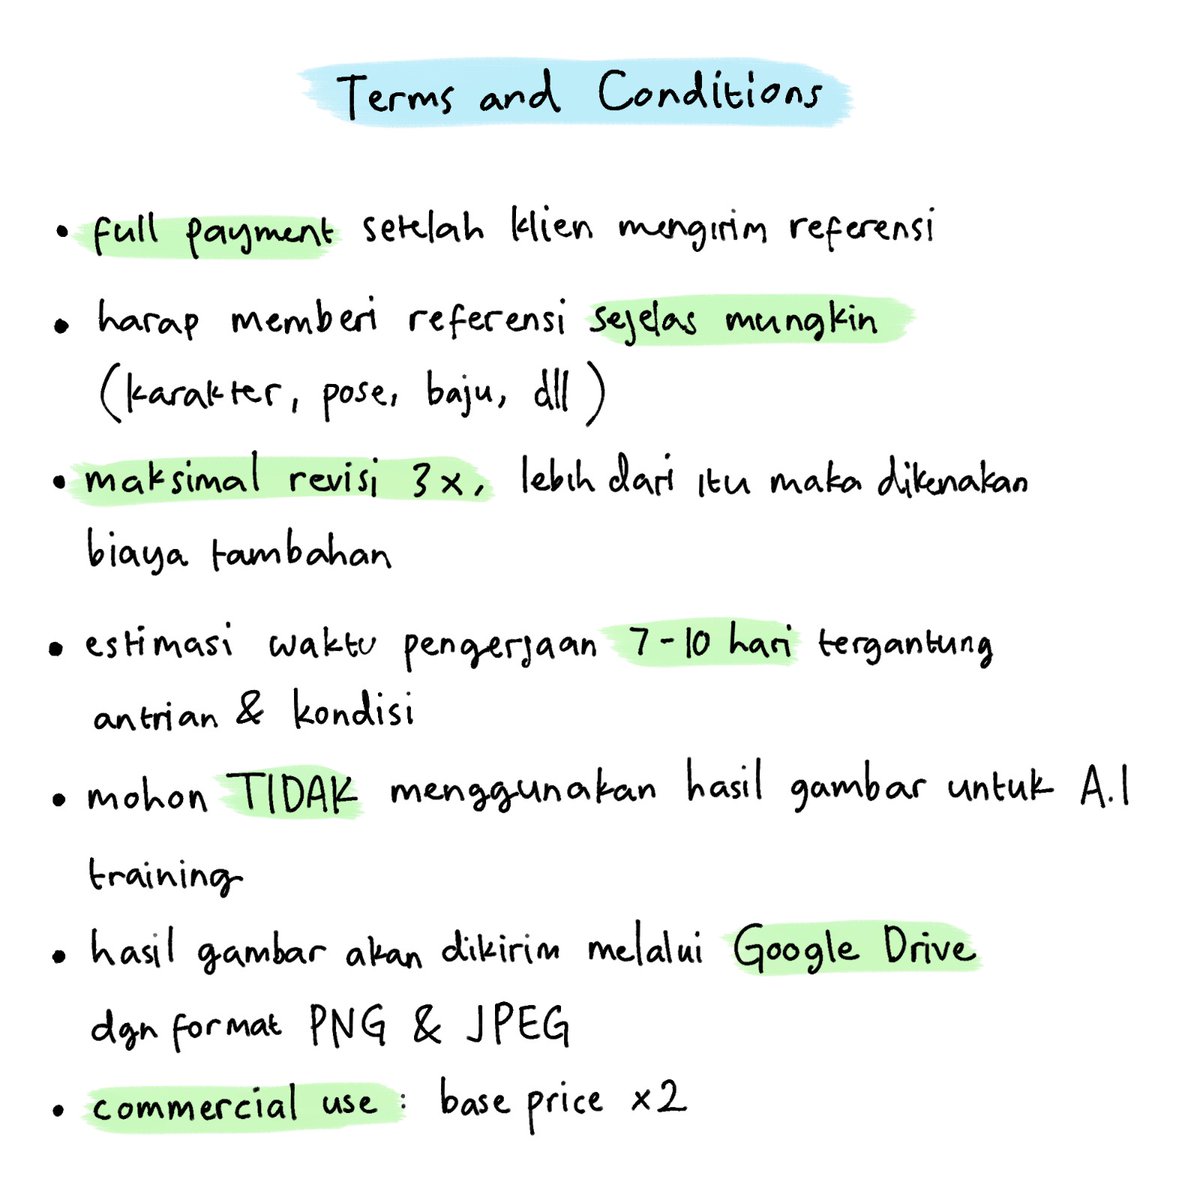 Terms and Conditions
• full payment setelah klien mengirim referensi
• harap memberi referensi sejelas mungkin
(karakter, pose, baju, dll)
• maksimal revisi 3x, lebih dari itu maka dikenakan
biaya tambahan
• estimasi waktu pengerjaan 7-10 hari tergantung
antrian & kondisi
• mohon TIDAK menggunakan hasil gambar untuk A.I
training
• hasil gambar akan dikirim melalui Google Drive
dgn format PNG & JPEG
• commercial use: base price x2